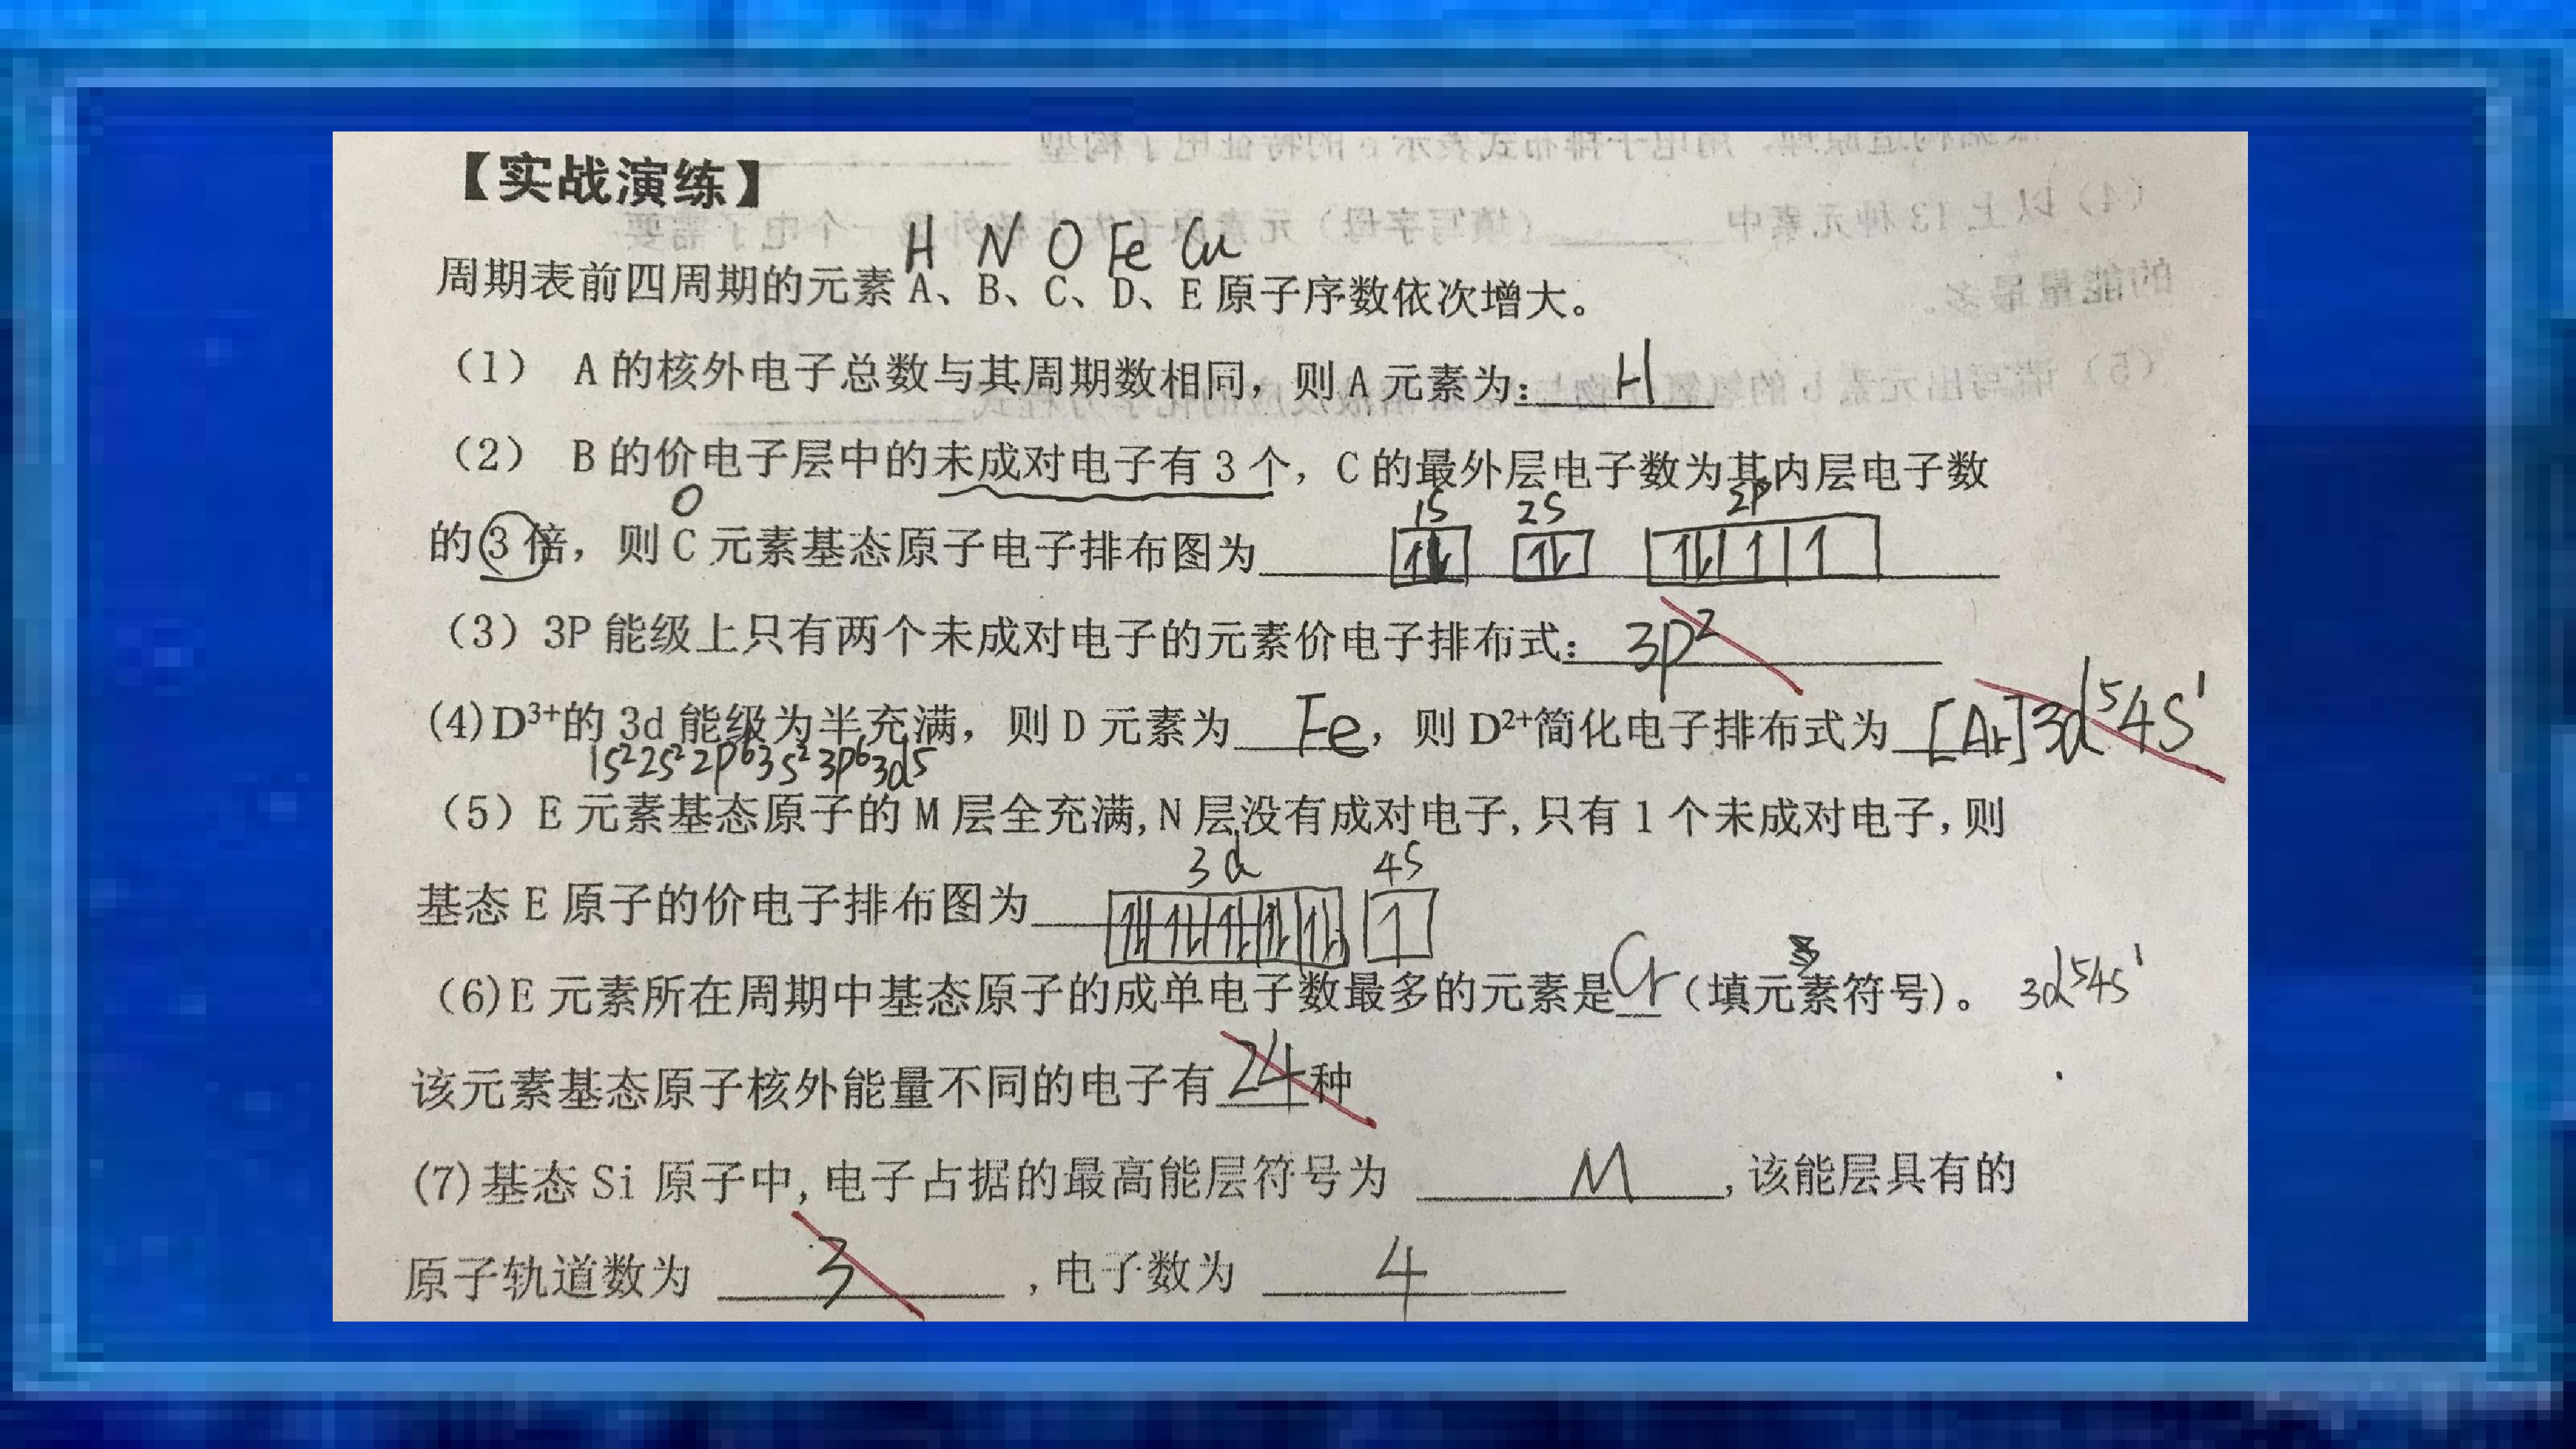 【实战演练】
H N O Fe Cu
周期表前四周期的元素 A、B、C、D、E 原子序数依次增大。
（1） A 的核外电子总数与其周期数相同，则 A 元素为: H
（2） B 的价电子层中的未成对电子有 3 个，C 的最外层电子数为其内层电子数
O 1S 2S 2P
的 3 倍，则 C 元素基态原子电子排布图为 1↓ 1↓ 1↓ 1 1
（3）3P 能级上只有两个未成对电子的元素价电子排布式: 3p²
(4)D³⁺的 3d 能级为半充满，则 D 元素为 Fe，则 D²⁺简化电子排布式为 [Ar]3d⁵4S¹
1s²2s²2p⁶3s²3p⁶3d5
（5）E 元素基态原子的 M 层全充满,N 层没有成对电子,只有 1 个未成对电子,则
3d 4S
基态 E 原子的价电子排布图为 1↓ 1↓ 1↓ 1↓ 1↓ 1
（6)E 元素所在周期中基态原子的成单电子数最多的元素是 Cr（填元素符号)。 3d⁵4S¹
该元素基态原子核外能量不同的电子有 24 种
(7)基态 Si 原子中,电子占据的最高能层符号为 M ,该能层具有的
原子轨道数为 3 ,电子数为 4